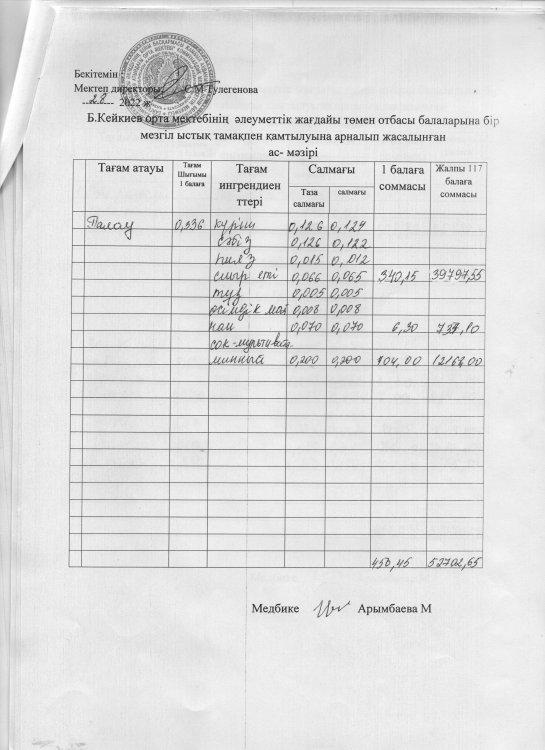 Бекітемін
Мектеп директоры С.М Тулегенова
28 2022 ж
Б.Кейкиев орта мектебінің әлеуметтік жағдайы төмен отбасы балаларына бір
мезгіл ыстық тамақпен қамтылуына арналып жасалынған
ас- мәзірі
Тағам атауы Тағам Шығымы 1 балаға Тағам ингрендиен ттері Салмағы 1 балаға соммасы Жалпы 117 балаға соммасы
Таза салмағы салмағы
Палау 0,336 күріш 0,126 0,124
сәбіз 0,126 0,122
пияз 0,015 0,012
сиыр еті 0,066 0,065 340,15 39797,55
тұз 0,005 0,005
өсімдік май 0,008 0,008
нан 0,070 0,070 6,30 737,10
сок-мультивита
минный 0,200 0,200 104,00 12168,00
450,45 52702,65
Медбике Арымбаева М